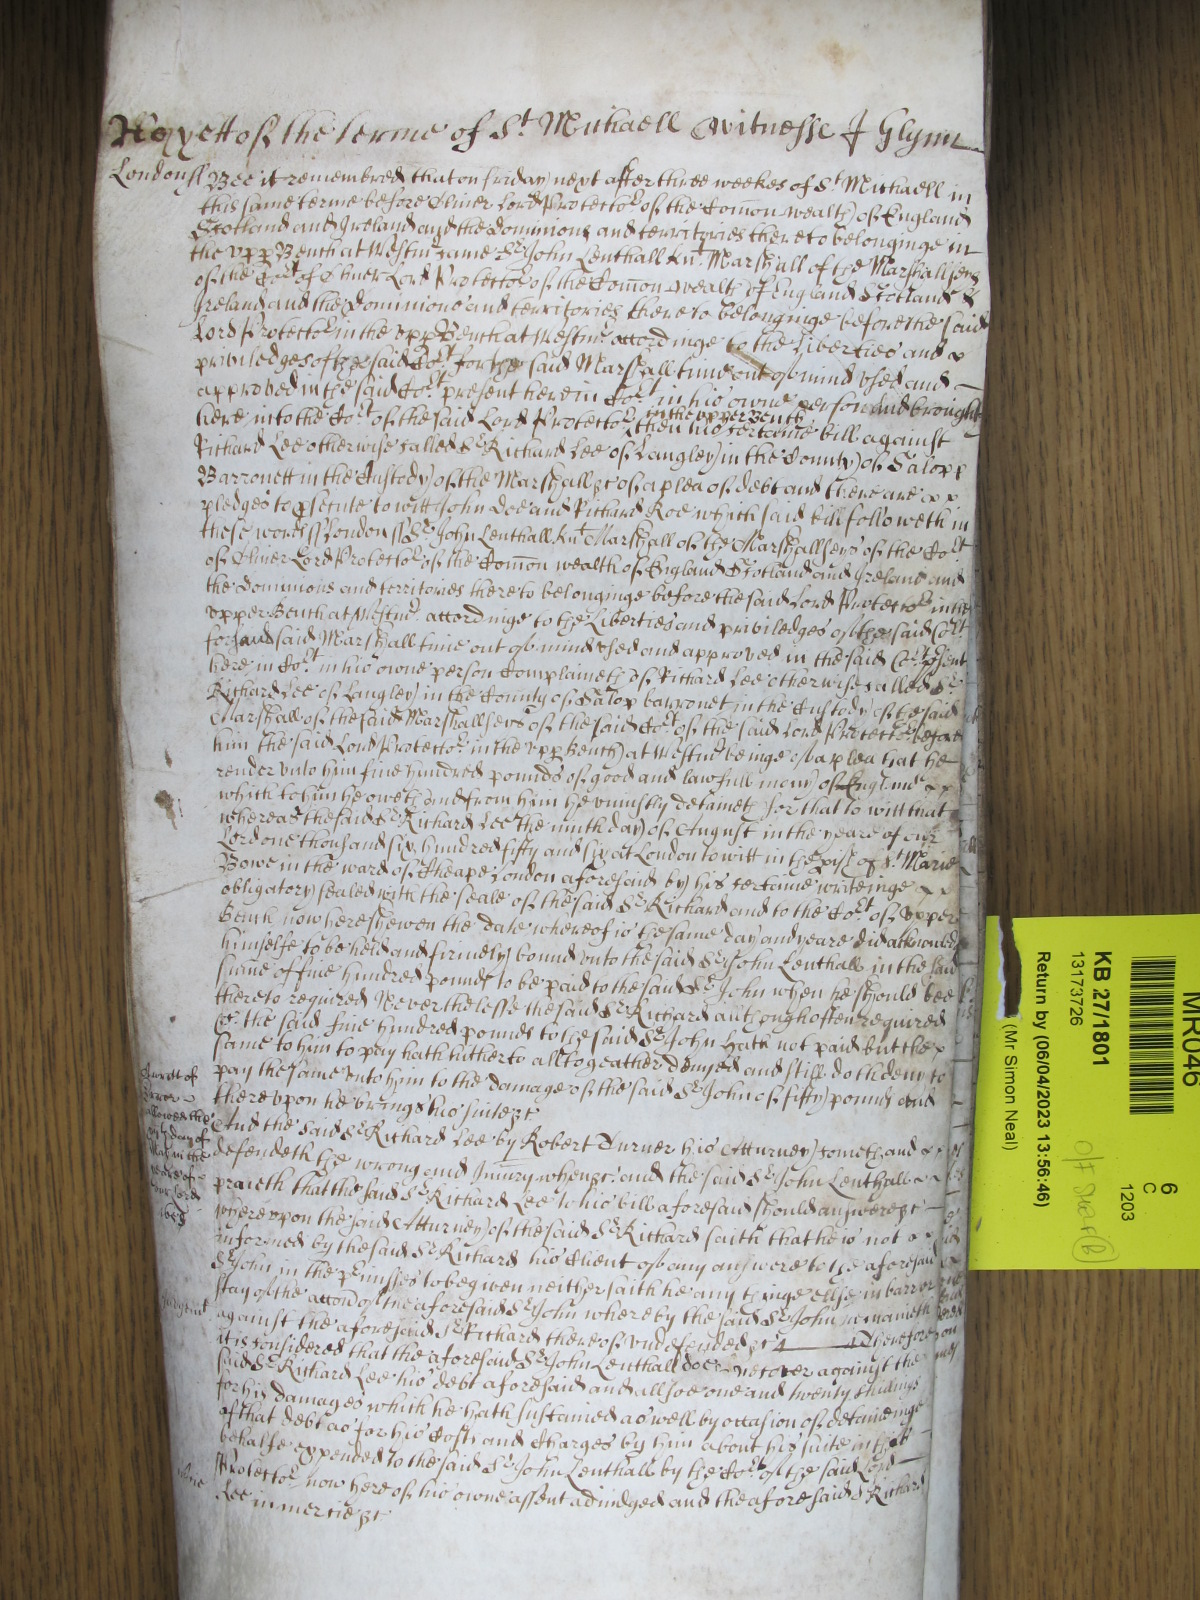 Yett of the terme of St Michaell Witnesse J Glynn
London ss Bee it remembred that on friday next after three weekes of St Michaell in
this same terme before Oliver Lord Protector of the Comon wealth of England
Scotland and Ireland and the dominions and territories thereto belonginge in
the upp Bench at Westmr came Sr John Lenthall Knt Marshall of the Marshallseys
of the Cort of Oliver Lord Protector of the Comon wealth of England Scotland &
Ireland and the Dominions and territories thereto belonginge before the said
Lord Protector in the upp Bench at Westmr accordinge to the Liberties and
priviledges of the said Cort for the said Marshall time out of mind used and
approved in the said Cort present here in Cort in his owne person And brought
here into the Cort of the said Lord Protector then his certaine bill against
in the upper Bench
Richard Lee otherwise called Sr Richard Lee of Langley in the County of Salopp
Barronett in the Custody of the Marshall &c of a plea of debt and there are
pledges to psecute to witt John Doe and Richard Roe which said bill followeth in
these words ss London ss Sr John Lenthall Knt Marshall of the Marshallseys of the Cort
of Oliver Lord Protector of the Comon wealth of England Scotland and Ireland and
the Dominions and territories thereto belonginge before the said Lord Protector in the
upper Bench at Westmr accordinge to the Liberties and priviledges of the said Cort
for said Marshall time out of mind used and approved in the said Cort psent
here in Cort in his owne person Complaineth of Richard Lee otherwise called Sr
Richard Lee of Langley in the County of Salop barronet in the Custody of the said
Marshall of the said Marshallseys of the said Cort of the said Lord Protector before
him the said Lord Protector in the upp Bench at Westmr beinge of a plea that he
render unto him five hundred pounds of good and lawfull money of England
which to him he oweth and from him he uniustly detaineth for that to witt that
whereas the said Sr Richard Lee the ninth day of August in the yeare of our
Lord one thousand six hundred fifty and six at London to witt in the pish of St Marie
Bowe in the ward of Cheape London aforesaid by his certaine writeinge
obligatory sealed with the seale of the said Sr Richard and to the Cort of upper
Bench now here shewen the Date whereof is the same day and yeare did acknowledge
himselfe to be held and firmely bound unto the said Sr John Lenthall in the said
summe of five hundred pounds to be paid to the said Sr John when he should bee
thereto required Neverthelesse the said Sr Richard although often required
&c the said five hundred pounds to the said Sr John hath not paid but the
same to him to pay hath hitherto alltogeather denyed and still doth deny to
pay the same unto him to the damage of the said Sr John of fifty pounds and
thereupon he brings his suite &c
And the said Sr Richard Lee by Robert Turner his Atturney cometh and
defendeth the wrong and Iniury when &c and the said Sr John Lenthall
praieth that the said Sr Richard Lee to his bill aforesaid should answere &c
whereupon the said Atturney of the said Sr Richard saith that he is not
informed by the said Sr Richard his Client of any answere to the aforesaid
Sr John in the pmisses to be given neither saith he any thinge ellse in barr or
stay of the accon of the aforesaid Sr John whereby the said Sr John remaineth
against the aforesaid Sr Richard thereof undefended &c Therefore
it is considered that the aforesaid Sr John Lenthall doe recover against the
said Sr Richard Lee his debt aforesaid and allsoe one and twenty shillings
for his damages which he hath sustained as well by occasion of detaineinge
of that debt as for his Costs and Charges by him about his suite in that
behalfe expended to the said Sr John Lenthall by the Cort of the said Lord
Protector now here of his owne assent adiudged and the aforesaid Sr Richard
Lee in mercie &c
writt of
Error
allowed the
day of
May in the
yeare of
our Lord
Judgmt
MR046
6
C
1203
KB 27/1801
13173726
Return by (06/04/2023 13:56:46)
(Mr Simon Neal)